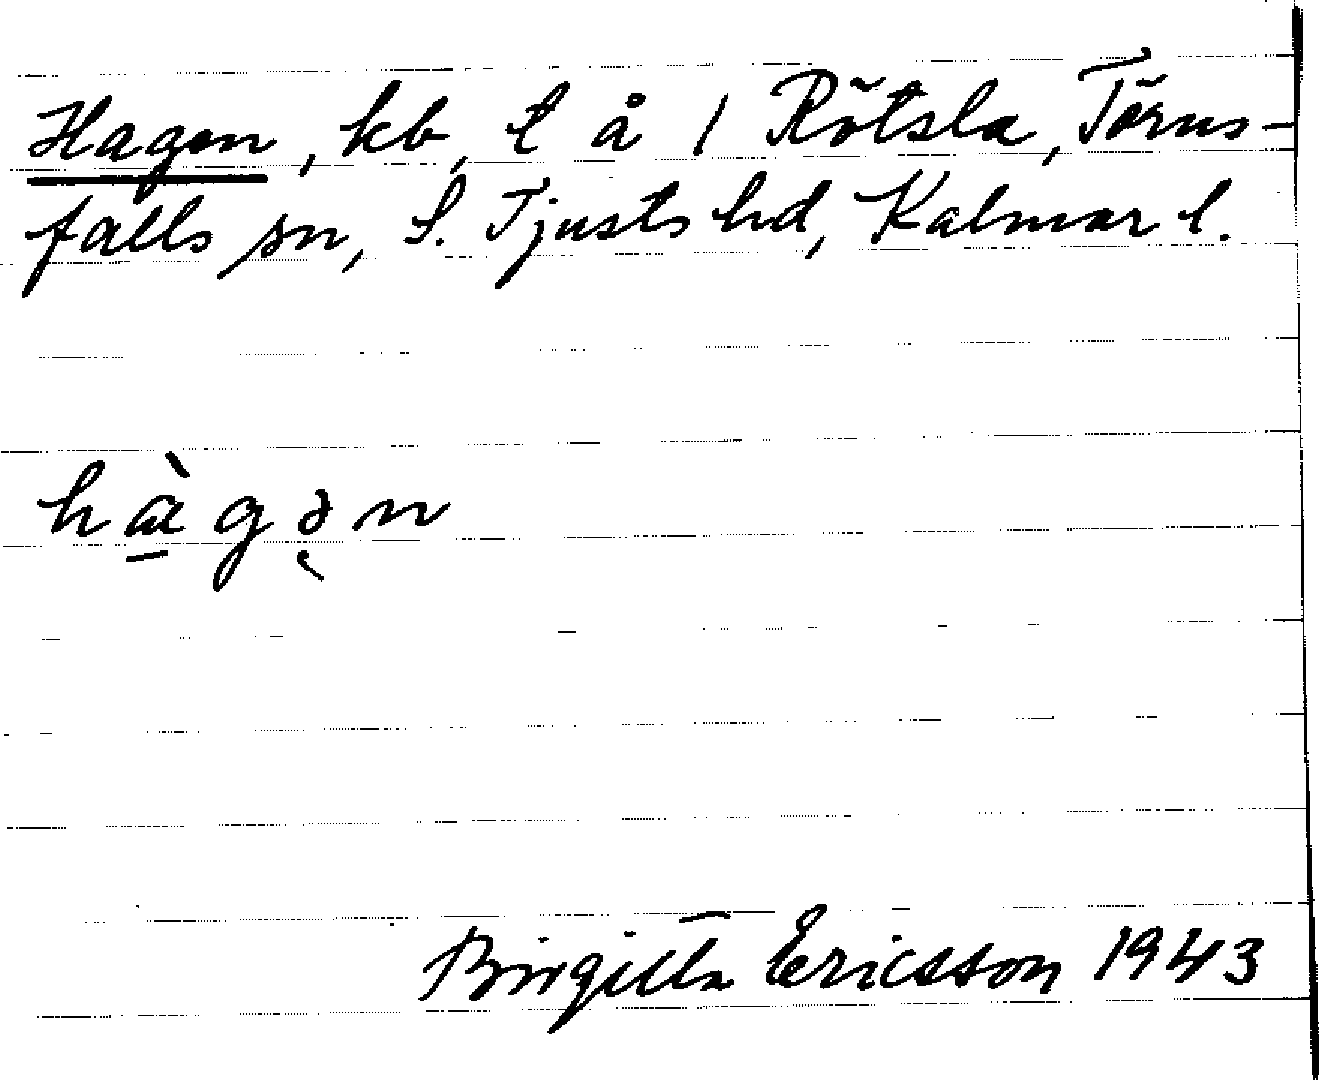 Hagen, kb, t å 1 Rötsla, Törns-
falls sn, S. Tjusts hd, Kalmar l.
hàgən
Birgitta Ericsson 1943